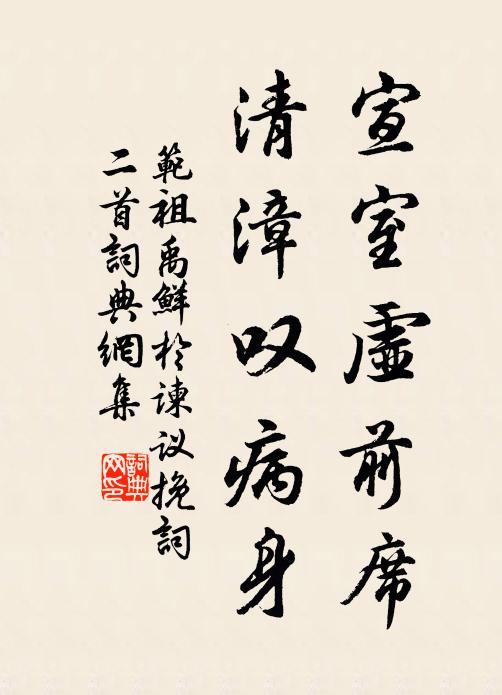 宣室虛前席
清漳叹病身
範祖禹鮮於諫议挽詞
二首詞典網集
詞典网印